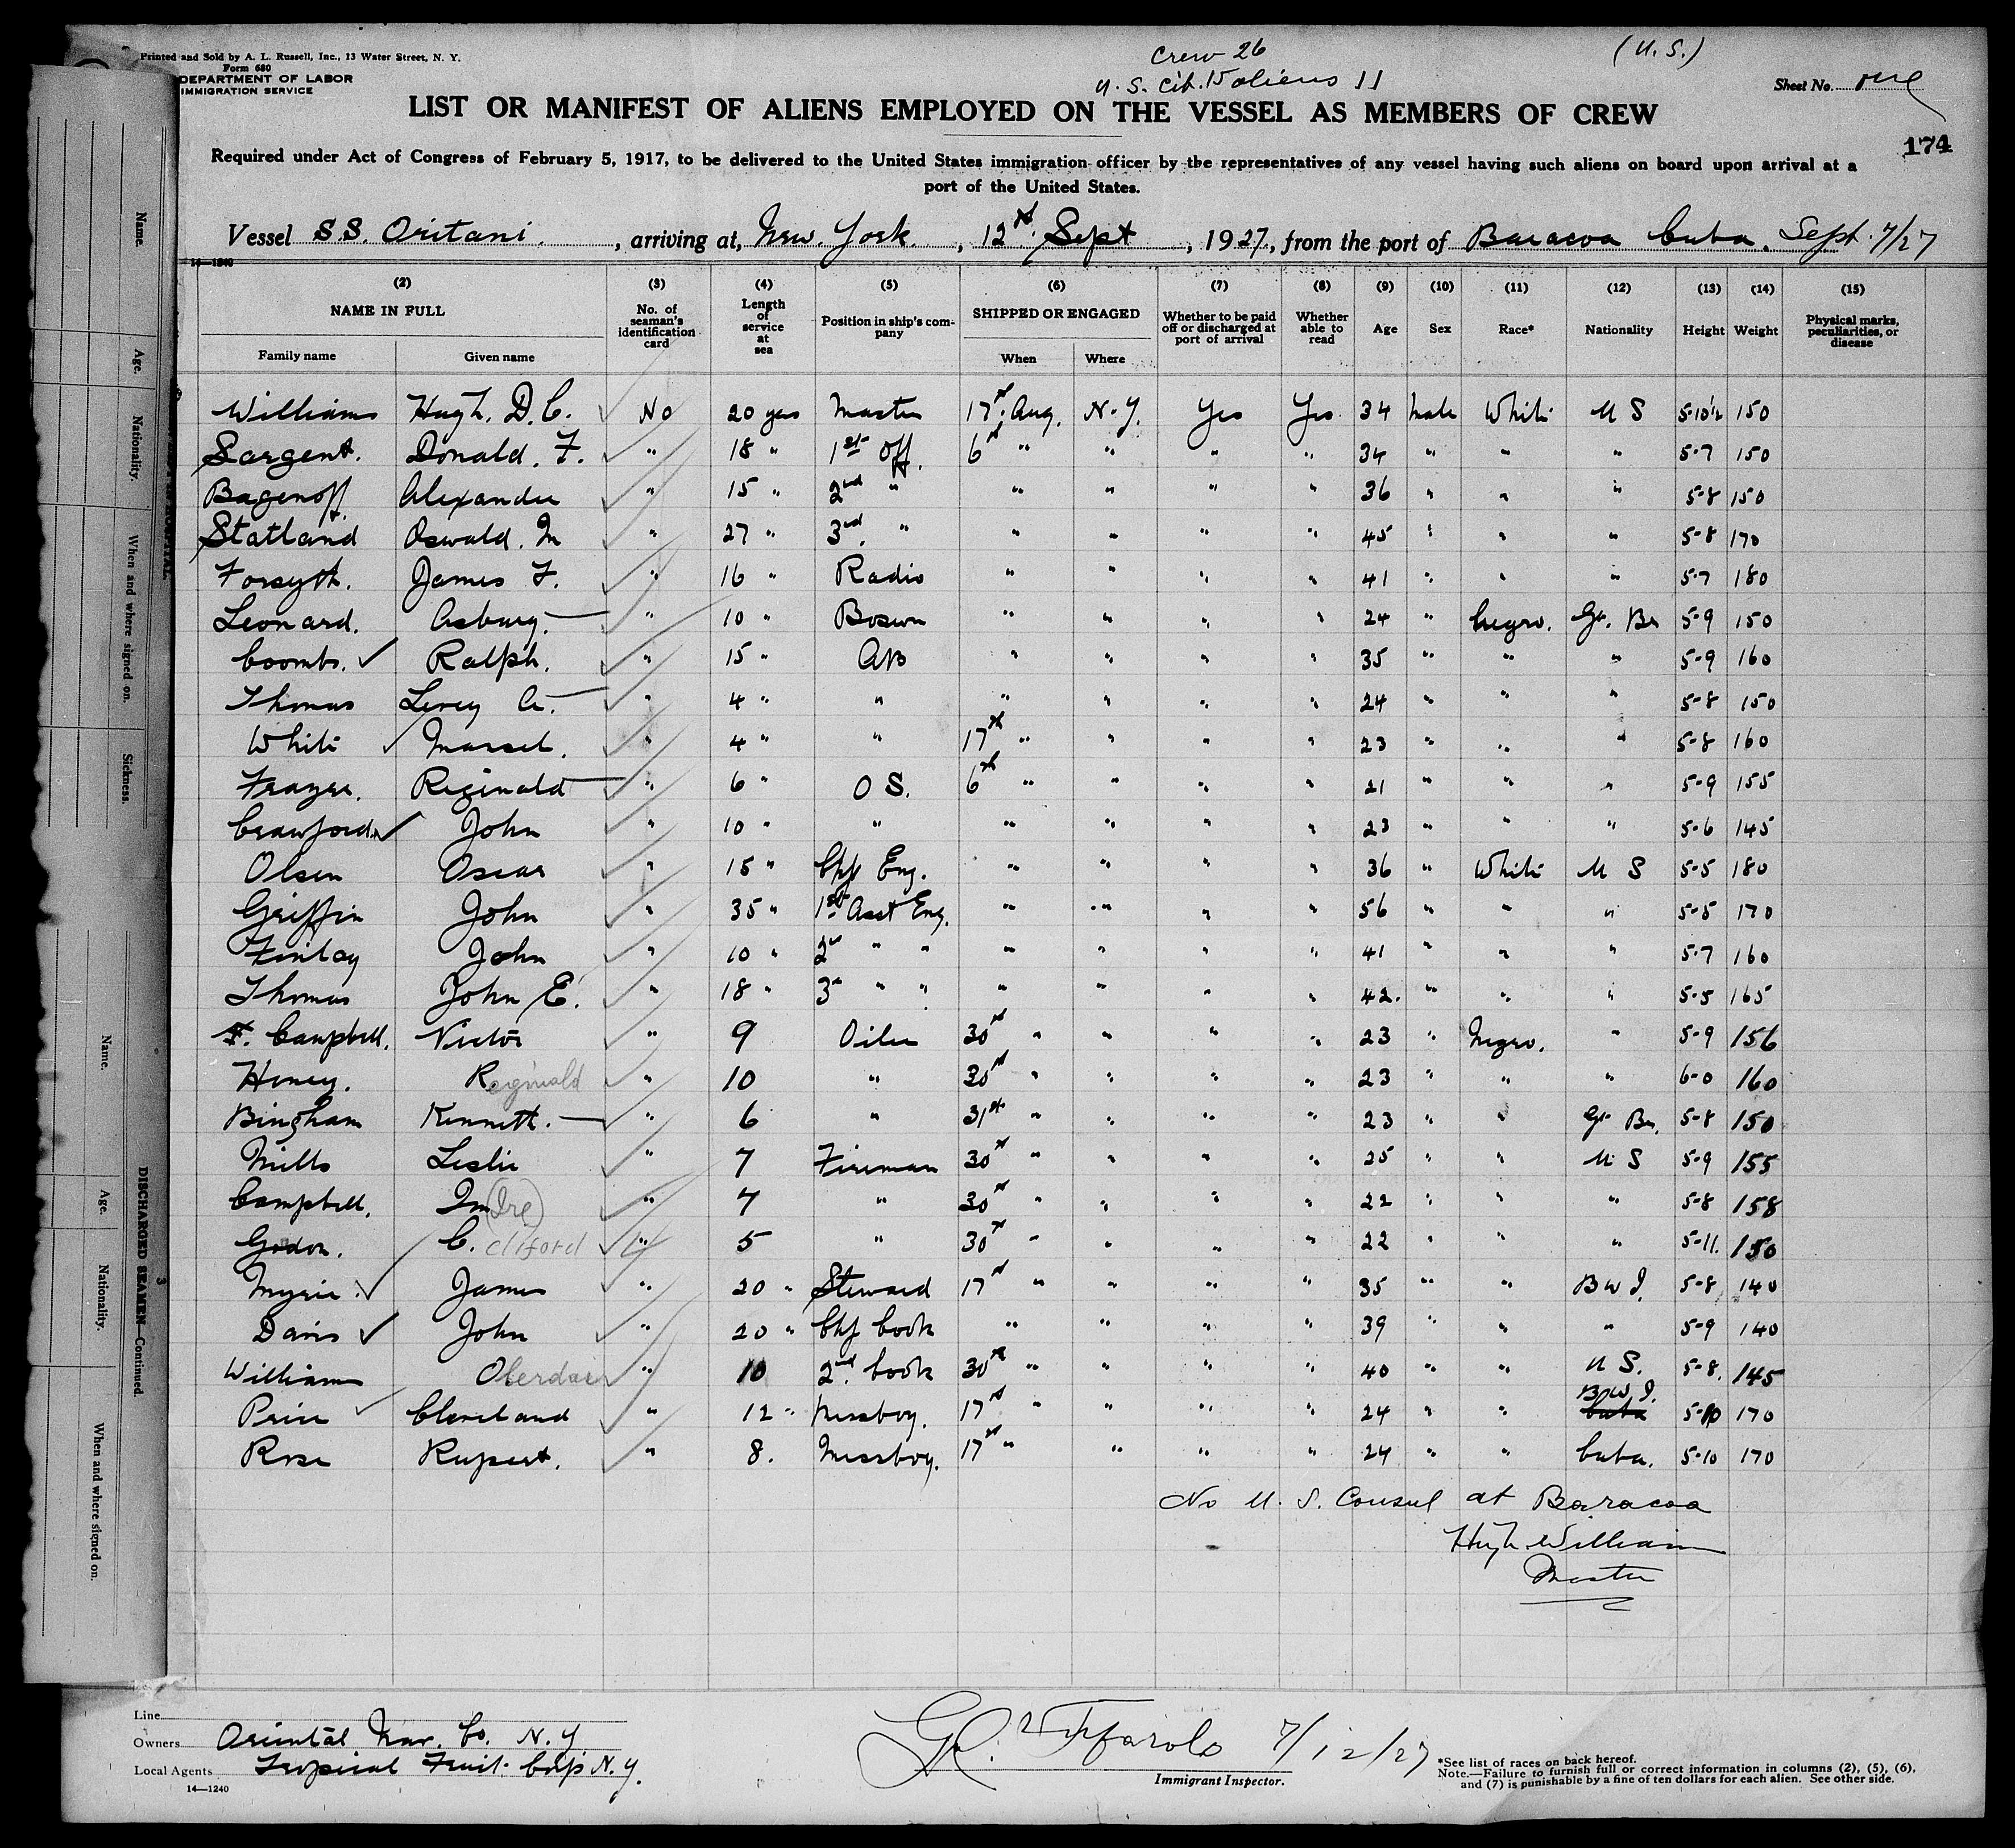 Printed and Sold by A. L. Russell, Inc., 13 Water Street, N. Y.
Form 680
DEPARTMENT OF LABOR
IMMIGRATION SERVICE
Crew 26
U. S. Cit. 15 aliens 11
(U. S.)
Sheet No. one
LIST OR MANIFEST OF ALIENS EMPLOYED ON THE VESSEL AS MEMBERS OF CREW
174
Required under Act of Congress of February 5, 1917, to be delivered to the United States immigration officer by the representatives of any vessel having such aliens on board upon arrival at a
port of the United States.
Vessel S.S. Oritani, arriving at, New York, 12th Sept, 1927, from the port of Baracoa Cuba. Sept. 7/27
14—1240
(2) (3) (4) (5) (6) (7) (8) (9) (10) (11) (12) (13) (14) (15)
NAME IN FULL No. of seaman's identification card Length of service at sea Position in ship's company SHIPPED OR ENGAGED Whether to be paid off or discharged at port of arrival Whether able to read Age Sex Race* Nationality Height Weight Physical marks, peculiarities, or disease
Family name Given name When Where
Williams Hugh. D. C. No 20 yrs Master 17th Aug. N. Y. Yes Yes 34 Male White U S 5-10½ 150
Sargent. Donald. F. " 18 " 1st Off. 6th " " " " 34 " " " 5-7 150
Bagenoff. Alexander " 15 " 2nd " " " " " 36 " " " 5-8 150
Statland Oswald. M " 27 " 3rd. " " " " " 45 " " " 5-8 170
Forsyth. James F. " 16 " Radio " " " " 41 " " " 5-7 180
Leonard. Asbury. " 10 " Bosun " " " " 24 " Negro. Gt. Br 5-9 150
Coombs. Ralph. " 15 " AB " " " " 35 " " " 5-9 160
Thomas Levey A. " 4 " " " " " " 24 " " " 5-8 150
White Marsel. " 4 " " 17th " " " " 23 " " " 5-8 160
Frazer. Reginald " 6 " O S. 6th " " " " 21 " " " 5-9 155
Crawford. John " 10 " " " " " " 23 " " " 5-6 145
Olsen Oscar " 15 " Chf Eng. " " " " 36 " White U S 5-5 180
Griffin John " 35 " 1st Asst Eng. " " " " 56 " " " 5-5 170
Finlay John " 10 " 2nd " " " " " " 41 " " " 5-7 160
Thomas John E. " 18 " 3rd " " " " " " 42. " " " 5-5 165
Campbell. Victor " 9 Oiler 30th " " " " 23 " Negro. " 5-9 156
Honey. Reginald " 10 " 30th " " " " 23 " " " 6-0 160
Bingham Kenneth. " 6 " 31st " " " " 23 " " Gt Br. 5-8 150
Mills Leslie " 7 Fireman 30th " " " " 25 " " U S 5-9 155
Campbell. (Ire) " 7 " 30th " " " " 22 " " " 5-8 158
Godon. C. cliford " 5 " 30th " " " " 22 " " " 5-11. 150
Myrie. James " 20 " Steward 17th " " " " 35 " " B W I. 5-8 140
Davis John " 20 " Chf Cook " " " " 39 " " " 5-9 140
Williams Oberdar " 10 2nd. Cook 30th " " " " 40 " " U S. 5-8. 145
Price Cleveland " 12 " Messboy. 17th " " " " 24 " " B.W.I. Cuba 5-10 170
Rose Rupert. " 8. Messboy. 17th " " " " 24 " " Cuba. 5-10 170
No U. S. Consul at Baracoa
Hugh Williams
Master
Line
Owners Oriental Nav. Co. N. Y
Local Agents Tropical Fruit Corp N. Y.
14—1240
7/12/27
Immigrant Inspector.
*See list of races on back hereof.
Note.—Failure to furnish full or correct information in columns (2), (5), (6),
and (7) is punishable by a fine of ten dollars for each alien. See other side.
Name.
Age.
Nationality.
When and where signed on.
Sickness.
Name.
Age.
Nationality.
When and where signed on.
DISCHARGED SEAMEN—Continued.
3